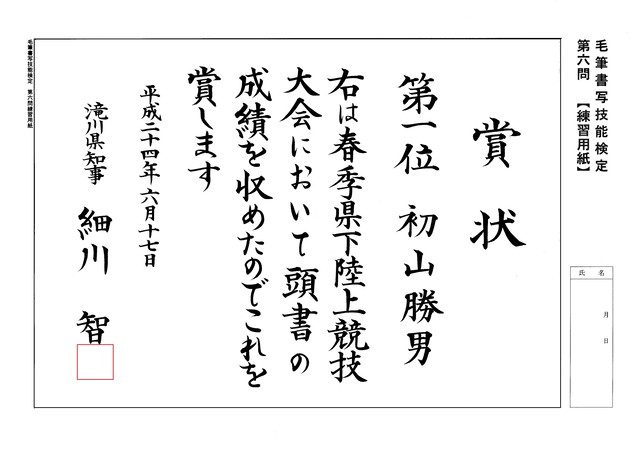 毛筆書写技能検定
第六問 【練習用紙】
氏名
月 日
賞状
第一位 初山勝男
右は春季県下陸上競技
大会において頭書の
成績を収めたのでこれを
賞します
平成二十四年六月十七日
滝川県知事 細川 智
毛筆書写技能検定 第六問練習用紙